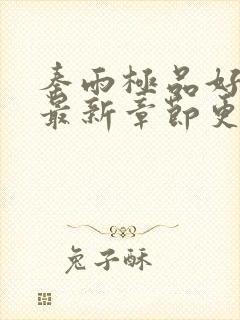 秦雨極品好
最新章節更
兔子酥